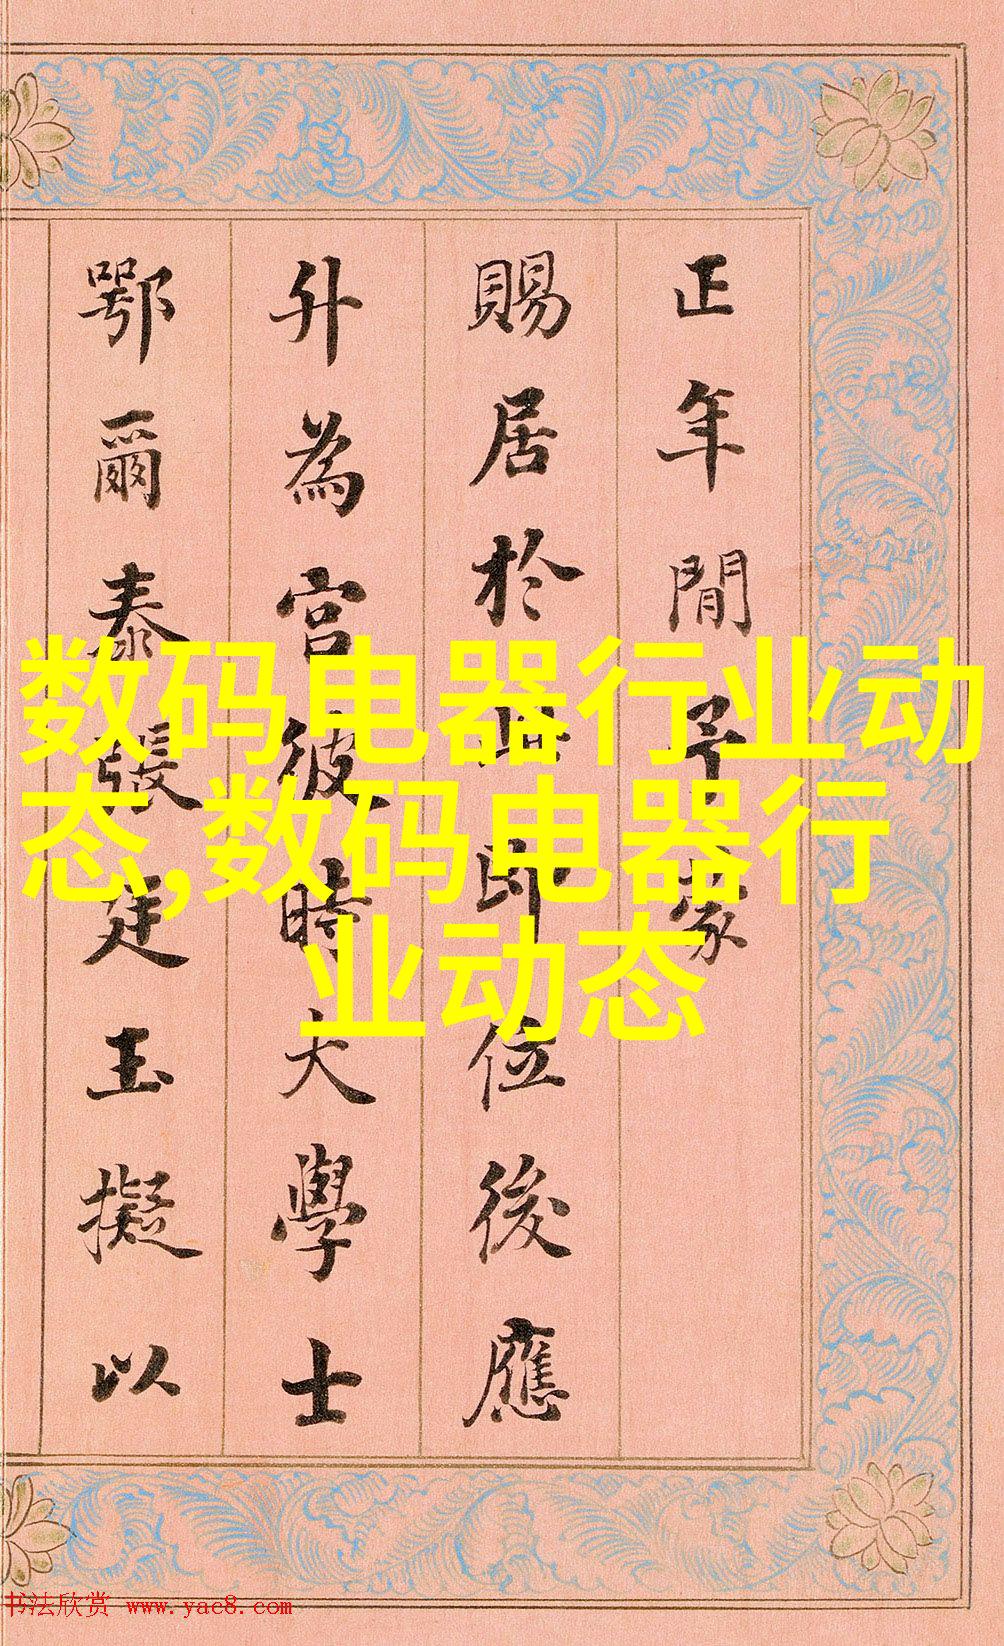 正年間予蒙
賜居於此即位後應
升為宮彼時大學士
鄂爾泰張廷玉擬以
数码电器行业动
态,数码电器行
业动态
书法欣赏 www.yac8.com